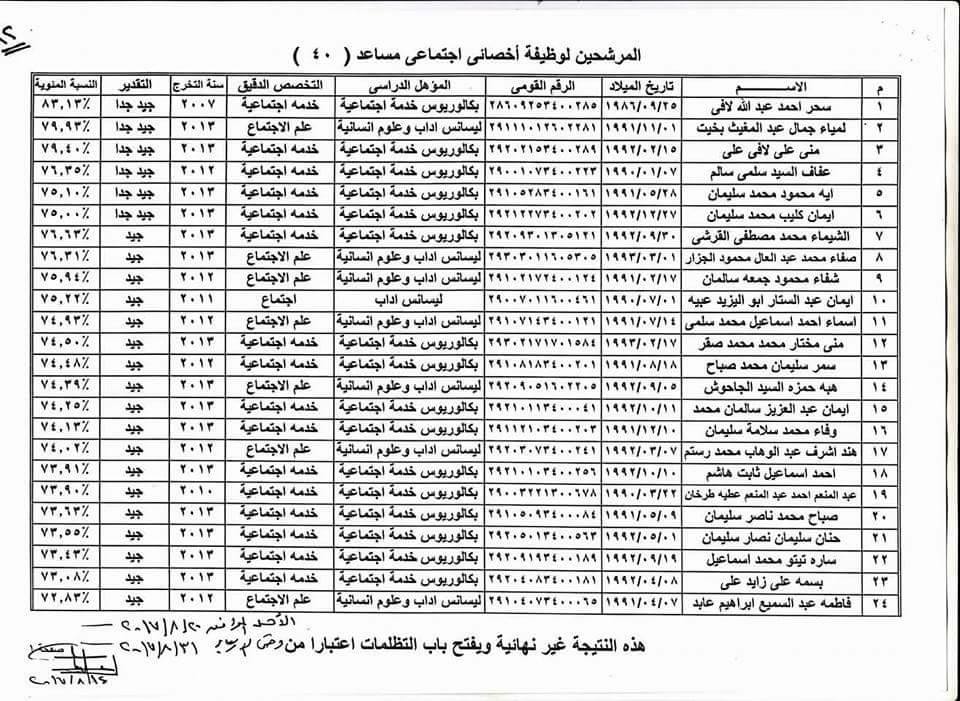 ٢
المرشحين لوظيفة أخصائى اجتماعى مساعد ( ٤٠ )
م الاسم تاريخ الميلاد الرقم القومى المؤهل الدراسى التخصص الدقيق سنة التخرج التقدير النسبة المئوية
١ سحر احمد عبد الله لافى ١٩٨٦/٠٩/٢٥ ٢٨٦٠٩٢٥٣٤٠٠٢٨٥ بكالوريوس خدمة اجتماعية خدمه اجتماعية ٢٠٠٧ جيد جدا ٨٣,١٣٪
٢ لمياء جمال عبد المغيث بخيت ١٩٩١/١١/٠١ ٢٩١١١٠١٢٦٠٢٢٨١ ليسانس اداب وعلوم انسانية علم الاجتماع ٢٠١٣ جيد جدا ٧٩,٩٣٪
٣ منى على لافى على ١٩٩٢/٠٢/١٥ ٢٩٢٠٢١٥٣٤٠٠٢٨٩ بكالوريوس خدمة اجتماعية خدمه اجتماعية ٢٠١٣ جيد جدا ٧٩,٤٠٪
٤ عفاف السيد سلمى سالم ١٩٩٠/٠١/٠٧ ٢٩٠٠١٠٧٣٤٠٠٢٢٣ بكالوريوس خدمة اجتماعية خدمه اجتماعية ٢٠١٢ جيد جدا ٧٦,٣٥٪
٥ ايه محمود محمد سليمان ١٩٩١/٠٥/٢٨ ٢٩١٠٥٢٨٣٤٠٠١٦١ بكالوريوس خدمة اجتماعية خدمه اجتماعية ٢٠١٣ جيد جدا ٧٥,١٠٪
٦ ايمان كليب محمد سليمان ١٩٩٢/١٢/٢٧ ٢٩٢١٢٢٧٣٤٠٠٢٠٢ بكالوريوس خدمة اجتماعية خدمه اجتماعية ٢٠١٣ جيد جدا ٧٥,٠٠٪
٧ الشيماء محمد مصطفى القرشى ١٩٩٢/٠٩/٣٠ ٢٩٢٠٩٣٠١٣٠٥١٢١ بكالوريوس خدمة اجتماعية خدمه اجتماعية ٢٠١٣ جيد ٧٦,٦٣٪
٨ صفاء محمد عبد العال محمود الجزار ١٩٩٣/٠٣/٠١ ٢٩٣٠٣٠١١٦٠٥٣٠٥ ليسانس اداب وعلوم انسانية علم الاجتماع ٢٠١٣ جيد ٧٦,٣١٪
٩ شفاء محمود جمعه سالمان ١٩٩١/٠٢/١٧ ٢٩١٠٢١٧٢٤٠٠١٢٤ ليسانس اداب وعلوم انسانية علم الاجتماع ٢٠١٢ جيد ٧٥,٩٤٪
١٠ ايمان عبد الستار ابو اليزيد عبيه ١٩٩٠/٠٧/٠١ ٢٩٠٠٧٠١١٦٠٠٤٦١ ليسانس اداب اجتماع ٢٠١١ جيد ٧٥,٢٢٪
١١ اسماء احمد اسماعيل محمد سلمى ١٩٩١/٠٧/١٤ ٢٩١٠٧١٤٣٤٠٠١٢١ ليسانس اداب وعلوم انسانية علم الاجتماع ٢٠١٢ جيد ٧٤,٩٣٪
١٢ منى مختار محمد محمد صقر ١٩٩٣/٠٢/١٧ ٢٩٣٠٢١٧١٧٠١٥٨٤ بكالوريوس خدمة اجتماعية خدمه اجتماعية ٢٠١٣ جيد ٧٤,٥٠٪
١٣ سمر سليمان محمد صباح ١٩٩١/٠٨/١٨ ٢٩١٠٨١٨٣٤٠٠٢٠١ بكالوريوس خدمة اجتماعية خدمه اجتماعية ٢٠١٢ جيد ٧٤,٤٨٪
١٤ هبه حمزه السيد الجاحوش ١٩٩٢/٠٩/٠٥ ٢٩٢٠٩٠٥١٦٠٢٢٠٥ ليسانس اداب وعلوم انسانية علم الاجتماع ٢٠١٣ جيد ٧٤,٣٩٪
١٥ ايمان عبد العزيز سالمان محمد ١٩٩٢/١٠/١١ ٢٩٢١٠١١٣٤٠٠٠٤١ بكالوريوس خدمة اجتماعية خدمه اجتماعية ٢٠١٣ جيد ٧٤,٢٥٪
١٦ وفاء محمد سلامة سليمان ١٩٩١/١٢/١٠ ٢٩١١٢١٠٣٤٠٠٢٠٣ بكالوريوس خدمة اجتماعية خدمه اجتماعية ٢٠١٣ جيد ٧٤,١٣٪
١٧ هند اشرف عبد الوهاب محمد رستم ١٩٩٢/٠٣/٠٧ ٢٩٢٠٣٠٧٣٤٠٠٢٤١ ليسانس اداب وعلوم انسانية علم الاجتماع ٢٠١٢ جيد ٧٤,٠٢٪
١٨ احمد اسماعيل ثابت هاشم ١٩٩٢/١٠/١٠ ٢٩٢١٠١٠٣٤٠٠٢٥٦ بكالوريوس خدمة اجتماعية خدمه اجتماعية ٢٠١٣ جيد ٧٣,٩١٪
١٩ عبد المنعم احمد عبد المنعم عطيه طرخان ١٩٩٠/٠٣/٢٢ ٢٩٠٠٣٢٢١٣٠٠٦٧٨ بكالوريوس خدمة اجتماعية خدمه اجتماعية ٢٠١٠ جيد ٧٣,٩٠٪
٢٠ صباح محمد ناصر سليمان ١٩٩١/٠٥/٠٩ ٢٩١٠٥٠٩٣٤٠٠٠٨٤ بكالوريوس خدمة اجتماعية خدمه اجتماعية ٢٠١٣ جيد ٧٣,٦٣٪
٢١ حنان سليمان نصار سليمان ١٩٩٢/٠٥/٠١ ٢٩٢٠٥٠١٣٤٠٠٥٦٣ بكالوريوس خدمة اجتماعية خدمه اجتماعية ٢٠١٣ جيد ٧٣,٥٥٪
٢٢ ساره تيتو محمد اسماعيل ١٩٩٢/٠٩/١٩ ٢٩٢٠٩١٩٣٤٠٠١٨٩ بكالوريوس خدمة اجتماعية خدمه اجتماعية ٢٠١٣ جيد ٧٣,٤٣٪
٢٣ بسمه على زايد على ١٩٩٢/٠٤/٠٨ ٢٩٢٠٤٠٨٣٤٠٠١٨١ بكالوريوس خدمة اجتماعية خدمه اجتماعية ٢٠١٣ جيد ٧٣,٠٨٪
٢٤ فاطمه عبد السميع ابراهيم عابد ١٩٩١/٠٤/٠٧ ٢٩١٠٤٠٧٣٤٠٠٠٦٥ ليسانس اداب وعلوم انسانية علم الاجتماع ٢٠١٢ جيد ٧٢,٨٣٪
الأحد ٢٠١٧/٨/٢٠
هذه النتيجة غير نهائية ويفتح باب التظلمات اعتبارا من وحتى ٢٠١٧/٨/٣١